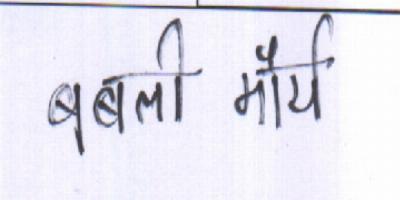 बबली मौर्य